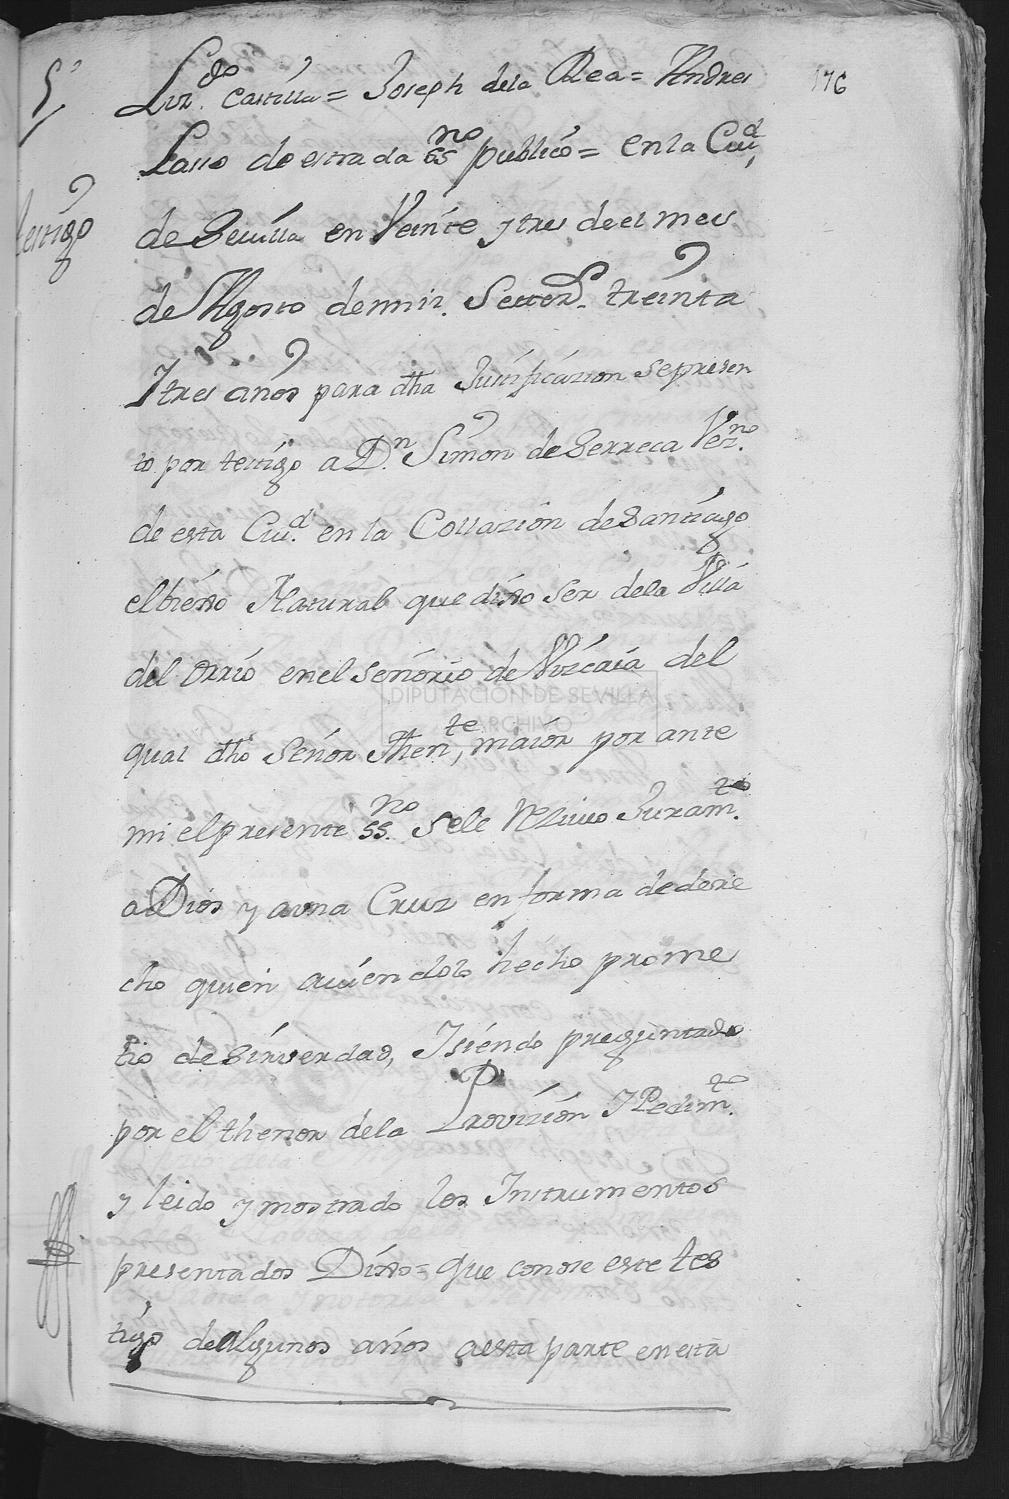 176
5º
testigo
Lizdo. Castilla = Joseph dela Rea = Andres
Lasso de estrada essno publico = en la Ciud
de Sevilla en Veinte y tres de el mes
de Agosto de mil Settezs. treinta
Y tres años para dha Justificazion se presen
to por testigo a Dn. Simon de Berreca Vezno.
de esta Ciud. en la Collazion de Santiago
el biexo Natural que dixo ser dela Villa
del orrio en el señorio de Vizcaia del
qual dho Señor Thente, maior por ante
mi el presente ssno. se le Rezivio Juramto.
a Dios y a una Cruz en forma de dere
cho quien aviendolo hecho prome
tio dezir verdad, Y siendo preguntado
por el thenor dela Provizion Y Pedimto.
y leido y mostrado los Instrumentos
presentados Dixo = que conose este tes
tigo de Algunos años a esta parte en esta
DIPUTACIÓN DE SEVILLA
ARCHIVO